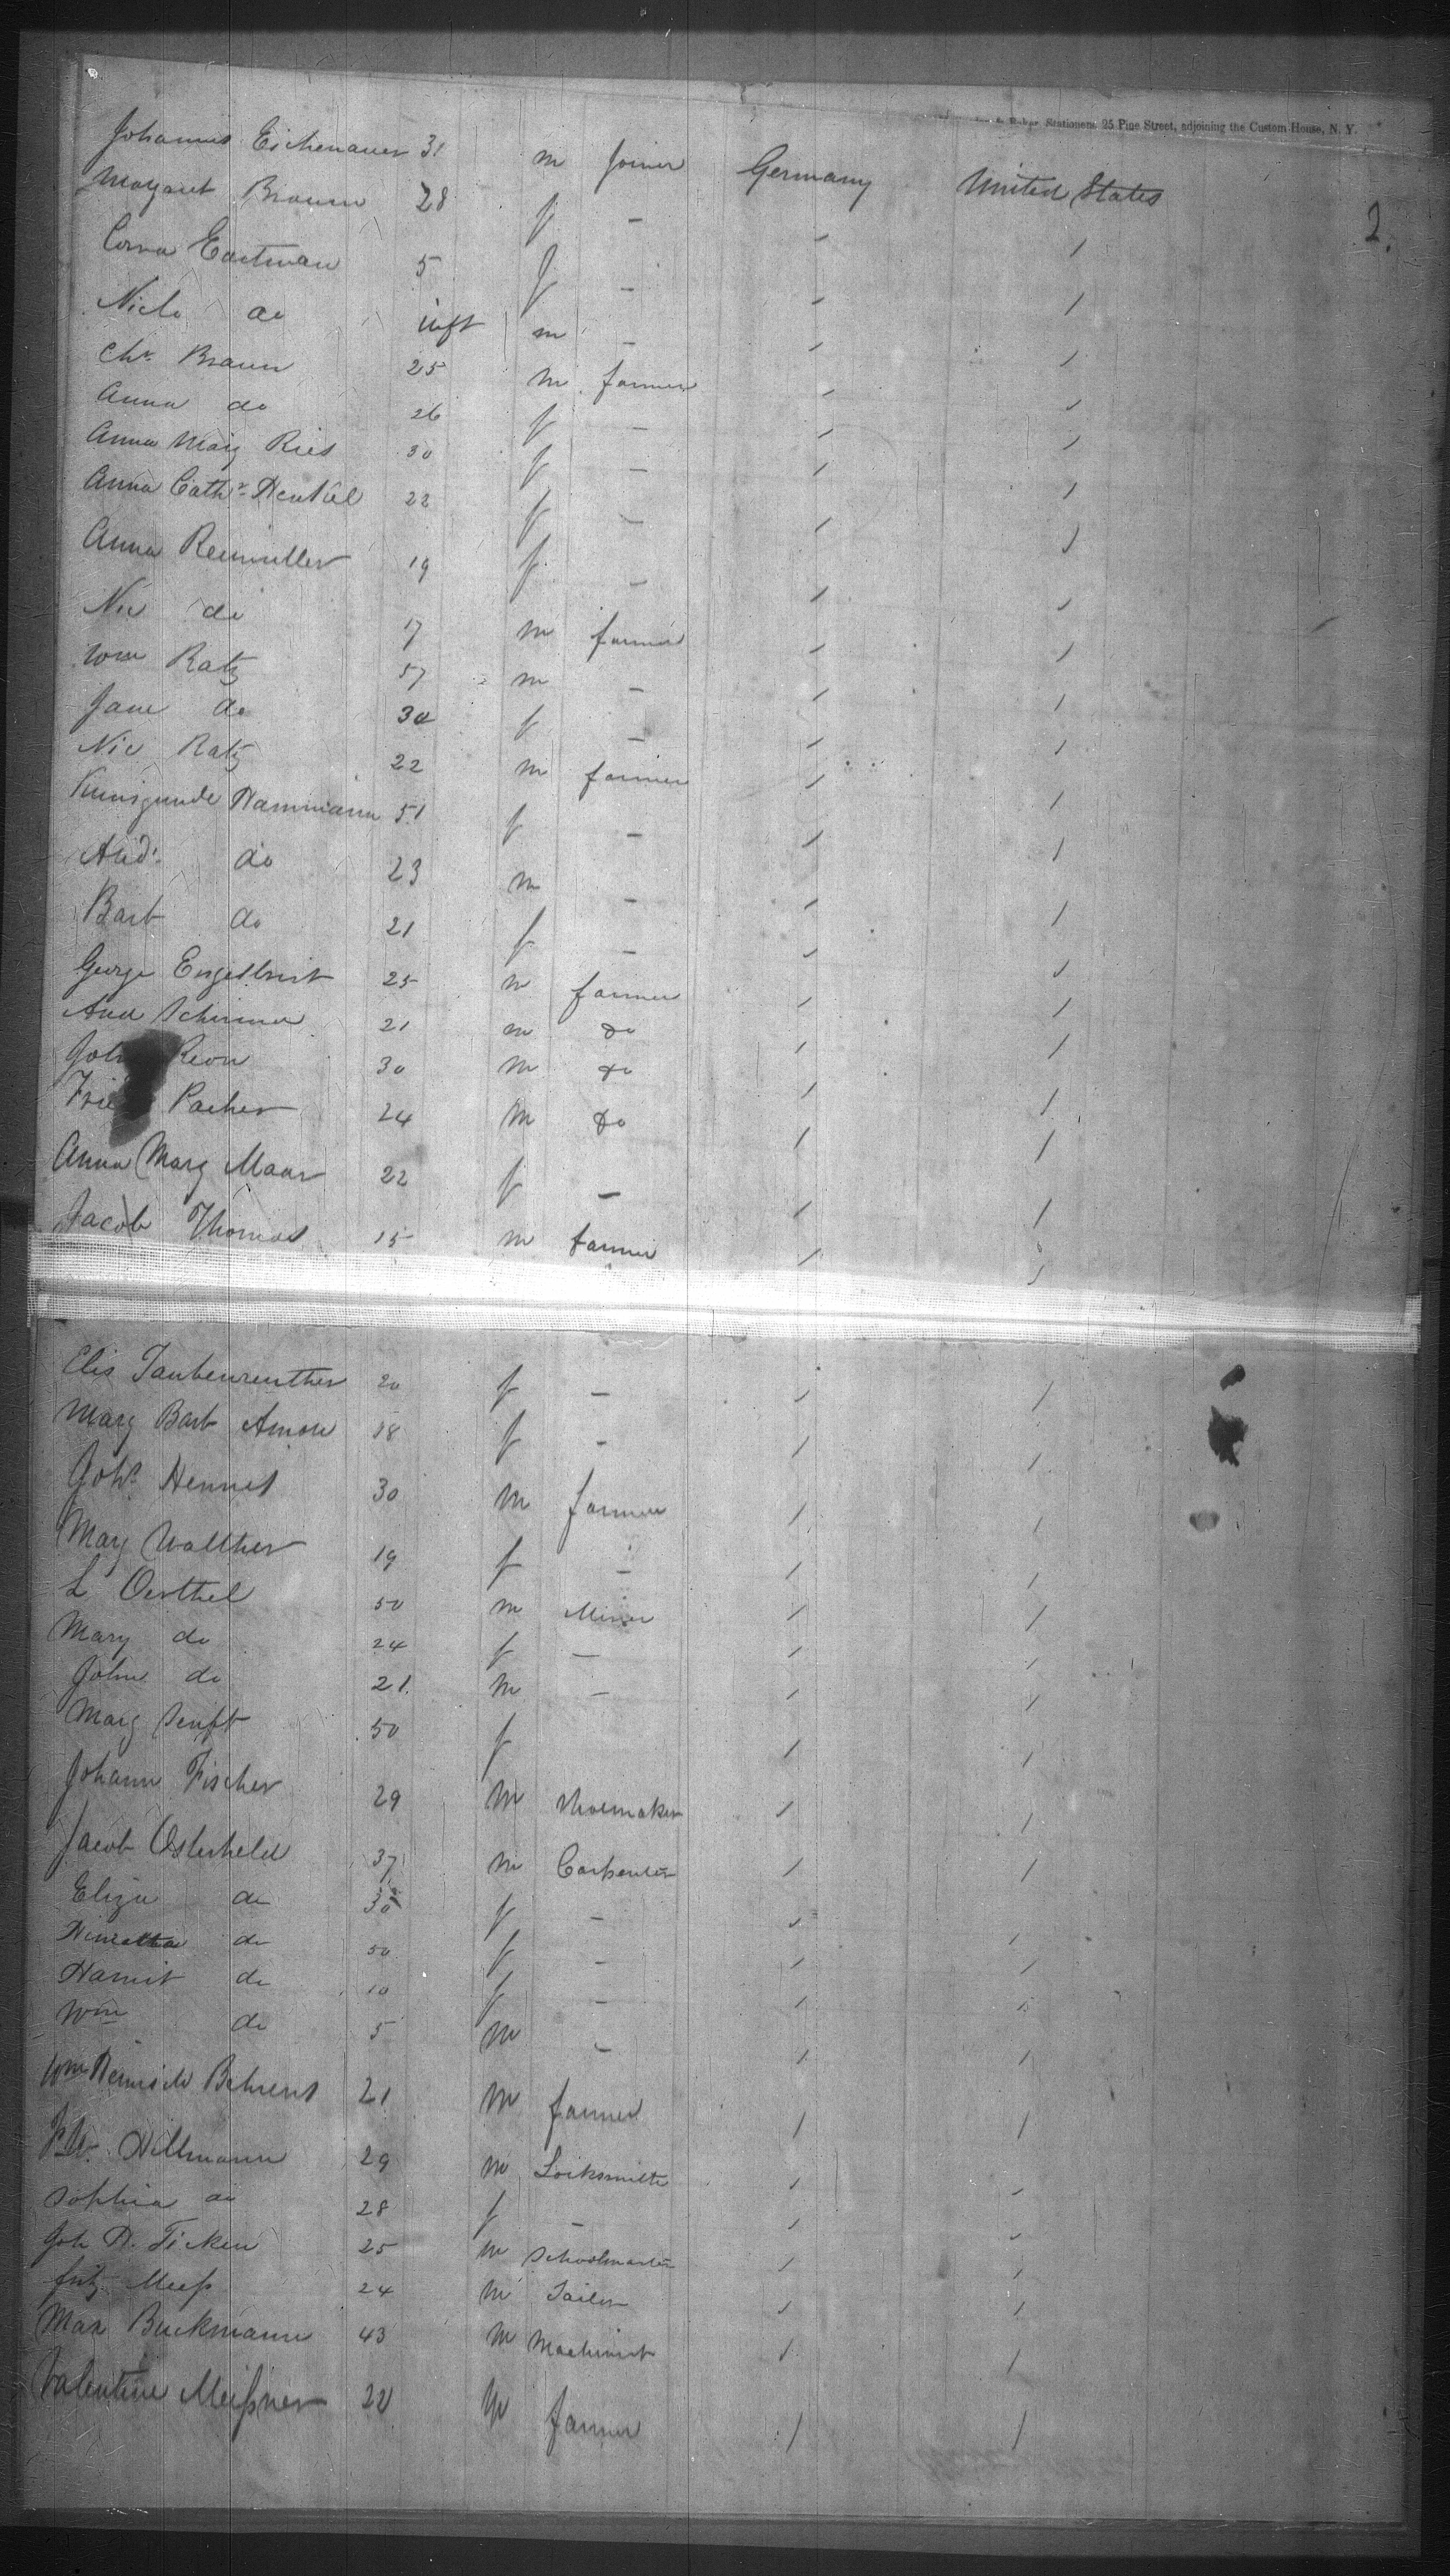 Baker, Stationers, 25 Pine Street, adjoining the Custom House, N. Y.
2.
Johannes Eichenauer 31 m Joiner Germany United States
Margaret Braun 28 f - / /
Eastman 5 f - / /
Nich do inft m - / /
Chr. Braun 25 m farmer / /
Anna do 26 f - / /
Anna Marg Ries 30 f - / /
Anna Cathr. Henkel 22 f - / /
Anna Reumuller 19 f - / /
Nic do 17 m farmer / /
Wm Ratz 57 m - / /
Jane do 30 f - / /
Nic Ratz 22 m farmer / /
Kunigunde Hammann 51 f - / /
Andr. do 23 m - / /
Barb do 21 f - / /
George Engelbrit 25 m farmer / /
And Schirmer 21 m do / /
Joh Reon 30 m do / /
Fried Pacher 24 m do / /
Anna Marg Maar 22 f - / /
Jacob Thomas 15 m farmer / /
Elis Taubenreuther 20 f - / /
Marg Barb Amon 18 f - / /
Johs Hennes 30 m farmer / /
Marg Walther 19 f - / /
L Oerthel 50 m Miner / /
Mary do 24 f - / /
John do 21. m - / /
Marg Senft 50 f / /
Johann Fischer 29 m Shoemaker / /
Jacob Osterheld 37 m Carpenter / /
Eliza do f - / /
do 50 f - / /
Harrit do 10 f - / /
Wm do 5 m - / /
Wm Heinrich Behrens 21 m farmer / /
Hillmann 29 m Locksmith / /
Sophia do 28 f - / /
Joh H. Ficken 25 m Schoolmaster / /
Fritz Meeß 24 m Tailor / /
Max Buckmann 43 m Machinist / /
Valentine Meißner 22 m farmer / /